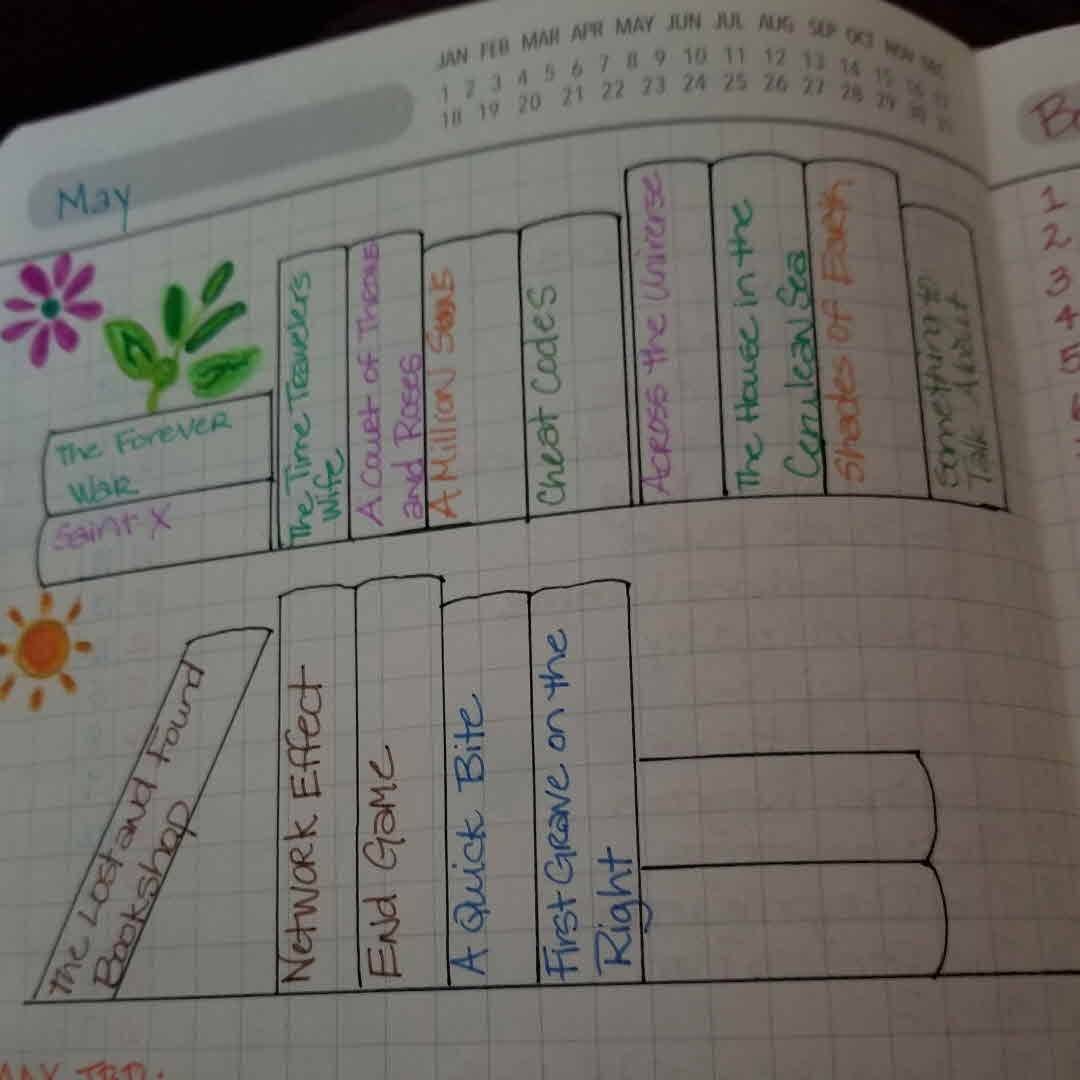 JAN FEB MAR APR MAY JUN JUL AUG SEP OCT NOV DEC
1 2 3 4 5 6 7 8 9 10 11 12 13 14 15 16 17
18 19 20 21 22 23 24 25 26 27 28 29 30 31
May
The Forever
War
Saint X
The Time Travelers
Wife
A Court of Thorns
and Roses
A Million Suns
Cheat Codes
Across the Universe
The House in the
Cerulean Sea
Shades of Earth
Something to
Talk About
The Lost and Found
Bookshop
Network Effect
End Game
A Quick Bite
First Grave on the
Right
1
2
3
4
5